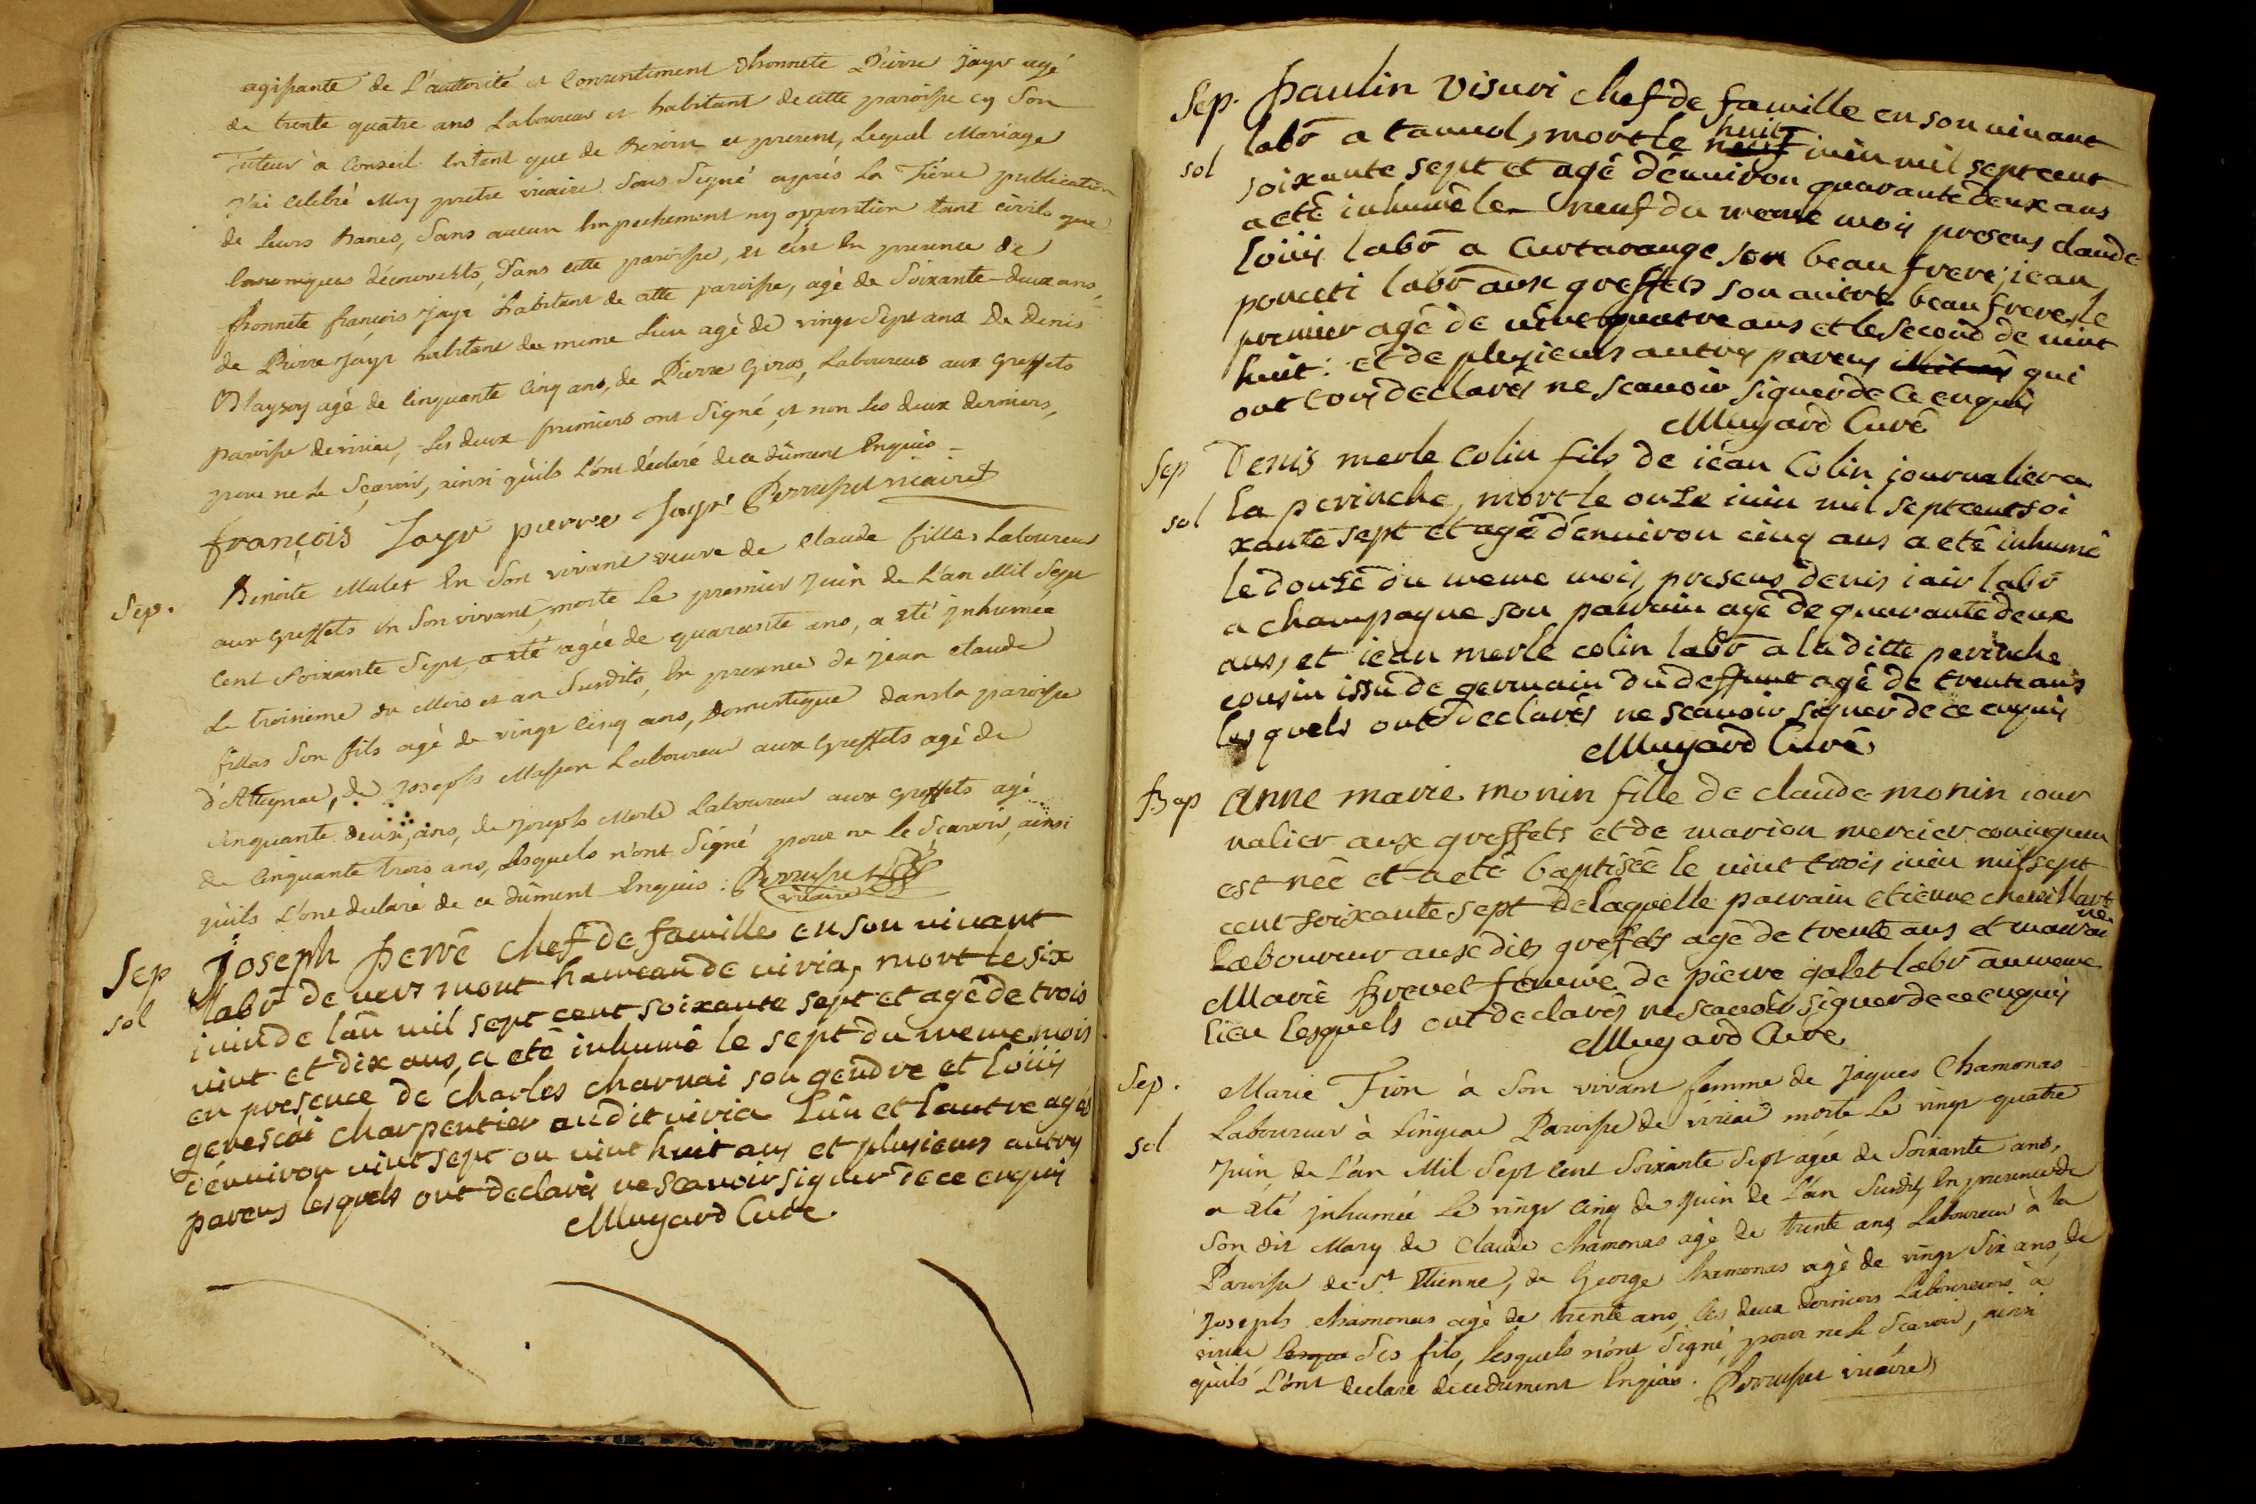 agissante de L'auttorité et Consentiment d'honnete Pierre jayr agé
de trente quatre ans Laboureur et habitant de cette paroisse cy Son
Tuteur à Conseil En tant que de Besoin et present, Lequel Mariage
J'ai Celebré Moy pretre vicaire Sous Signé après La 3ieme publication
de Leurs Bancs, Sans aucun Empechement ny opposition tant Civils que
Canoniques découverts, dans cette paroisse, et c'est En presence de
honnete françois Jayr habitant de cette paroisse, agé de Soixante-deux ans,
de Pierre Jayr habitant du meme Lieu agé de vingt Sept ans De Denis
Blayson agé de Cinquante Cinq ans, de Pierre Giros, Laboureur aux Greffets
paroisse de viriac, Les deux premiers ont Signé, et non Les deux derniers,
pour ne Le Sçavoir, ainsi qu'ils L'ont déclaré de ce dûment Enquis
françois Jayr pierre Jayr Perruset vicaire
Sep. Benoite Mulet En Son vivant veuve de Claude fillas Laboureur
aux Greffets En Son vivant, morte Le premier Juin de L'an Mil Sept
Cent Soixante Sept, a été agée de quarante ans, a été jnhumée
Le troisieme du Mois et an Susdits, En presence de jean Claude
fillas Son fils agé de vingt Cinq ans, Domestique dans la paroisse
d'Attignac, de Joseph Masson Laboureur aux Greffets agé de
Cinquante deux ans, de Joseph Merle Laboureur aux Greffets agé
de Cinquante trois ans, Lesquels n'ont Signé pour ne le Scavoir, ainsi
qu'ils L'ont declaré de ce dûment Enquis. Perruset
vicaire
Sep Joseph perré chef de famille en son vivant
sol labr de vers mont hameau de viria, mort le six
iuin de lan mil sept cent soixante sept et agé de trois
vint et dix ans, a eté inhumé le sept du meme mois
en presence de charles charnai son gendre et loüis
gerescai charpentier audit viria l'un et l'autre agés
d'environ vint sept ou vint huit ans et plusieurs autres
parens lesquels ont declarés ne scavoir signer de ce enquis
Muyard Curé.
Sep. paulin visuri chef de famille en son vivant
huit
sol labr a tanvol, mort le neuf iuin mil sept cent
soixante sept et agé d'environ quarante deux ans
a eté inhumé le neuf du meme mois presens claude
loüis labr a curtarange son beau frere, jean
ponceti labr aux greffets son autre beau frere, le
premier agé de vint quatre ans et le second de vint
huit: et de plusieurs autres parens qui
ont tous declarés ne scavoir signer de ce enquis
Muyard Curé
Sep Denis merle colin fils de iean Colin journalier a
sol la perinche, mort le onze iuin mil sept cent soi
xante sept et agé d'environ cinq ans a eté inhumé
le douze du meme mois, presens denis iair labr
a champagne son parrain agé de quarante deux
ans, et iean merle colin labr a la ditte perinche
cousin issu de germain du deffunt agé de trente ans
lesquels ont declarés ne scavoir signer de ce enquis
Muyard Curé
Bap Anne marie monin fille de claude monin iour
nalier aux greffets et de marion mercier conieguem
est née et a eté baptisée le vint trois iuin mil sept
cent soixante sept de laquelle parrain etienne chevillart
Laboureur ausedits greffets agé de trente ans et marrai
ne
Marie Brevet femme de pierre galet labr au meme
lieu lesquels ont declarés ne scavoir signer de ce enquis
Muyard Curé
Sep. Marie Fion à Son vivant femme de Jaques Chamonas
sol Laboureur à Lingeac Paroisse de viriac morte Le vingt quatre
Juin de L'an Mil Sept Cent Soixante Sept agée de Soixante ans,
a été jnhumée Le vingt Cinq de Juin de L'an Susdit, En presence de
Son dit Mary de Claude Chamonas agé de trente ans Laboureur à la
Paroisse de St Etienne, de George Chamonas agé de vingt Six ans, de
Joseph Chamonas agé de trente ans, Les deux derniers Laboureurs à
viriac Lesque Ses fils, Lesquels n'ont Signé pour ne le Scavoir, ainsi
qu'ils L'ont declaré de ce dument Enquis. Perruset vicaire